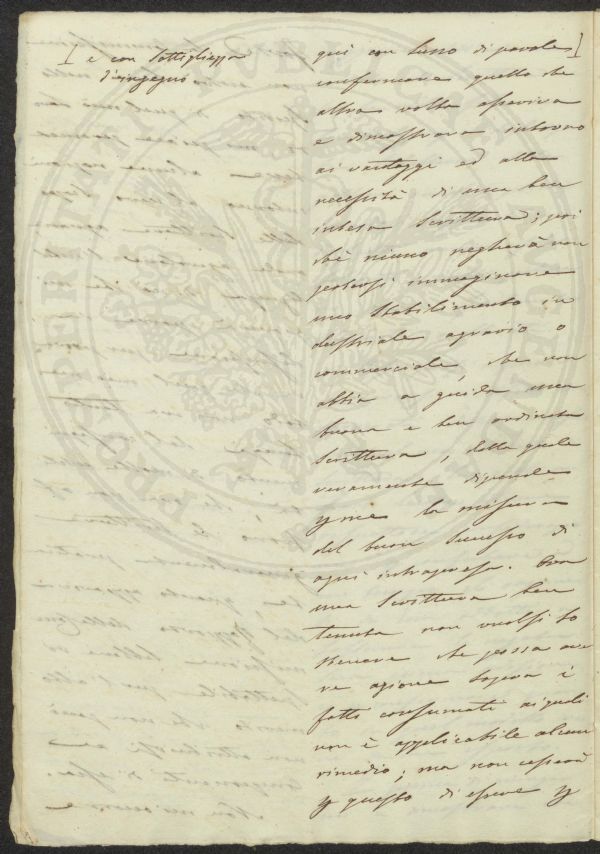 [ e con sottigliezza
d'ingegno
qui con lusso di parole ]
confermare quello che
altra volta asseriva
e dimostrava intorno
ai vantaggi ed alla
necessità di una ben
intesa Scrittura; poi
chè niuno negherà non
potersi immaginare
uno Stabilimento in
dustriale agrario o
commerciale, che non
abbia a guida una
buona e ben ordinata
Scrittura, dalla quale
veramente dipende
la misura
del buon Successo di
ogni intrapresa. Con
una Scrittura ben
tenuta non vuolsi so
stenere che possa ave
re azione sopra i
fatti consumati ai quali
non è applicabile alcun
rimedio; ma non cesserà
questo di essere